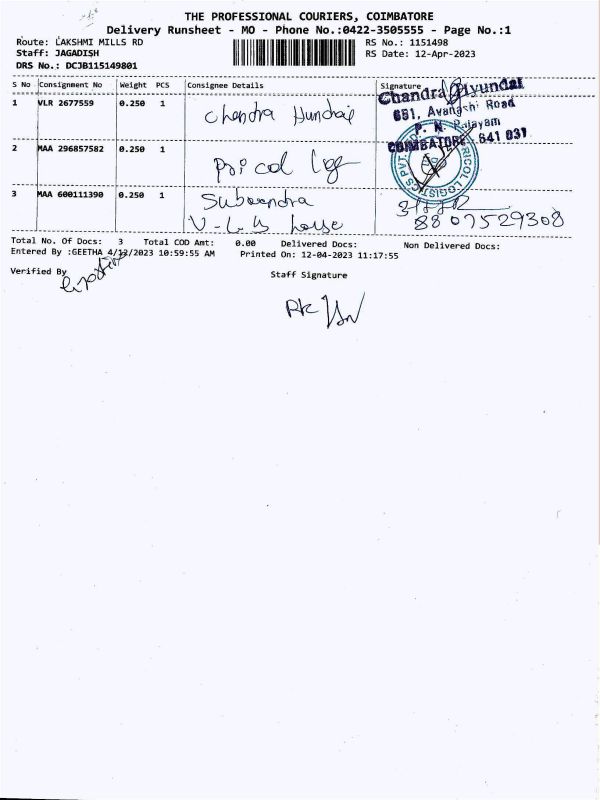 THE PROFESSIONAL COURIERS, COIMBATORE
Delivery Runsheet - MO - Phone No.:0422-3505555 - Page No.:1
Route: LAKSHMI MILLS RD
RS No.: 1151498
Staff: JAGADISH
RS Date: 12-Apr-2023
DRS No.: DCJB115149801
S No Consignment No Weight PCS Consignee Details Signature
1 VLR 2677559 0.250 1 Chandra Hundai
Chandra Hyundai
651, Avanashi Road
P. N. Palayam
COIMBATORE - 641 037.
2 MAA 296857582 0.250 1 Pricol Log
PRICOL LOGISTICS PVT.
3 MAA 600111390 0.250 1
V-L-B house
8807529308
Total No. Of Docs: 3 Total COD Amt: 0.00 Delivered Docs: Non Delivered Docs:
Entered By :GEETHA 4/12/2023 10:59:55 AM Printed On: 12-04-2023 11:17:55
Verified By
Staff Signature